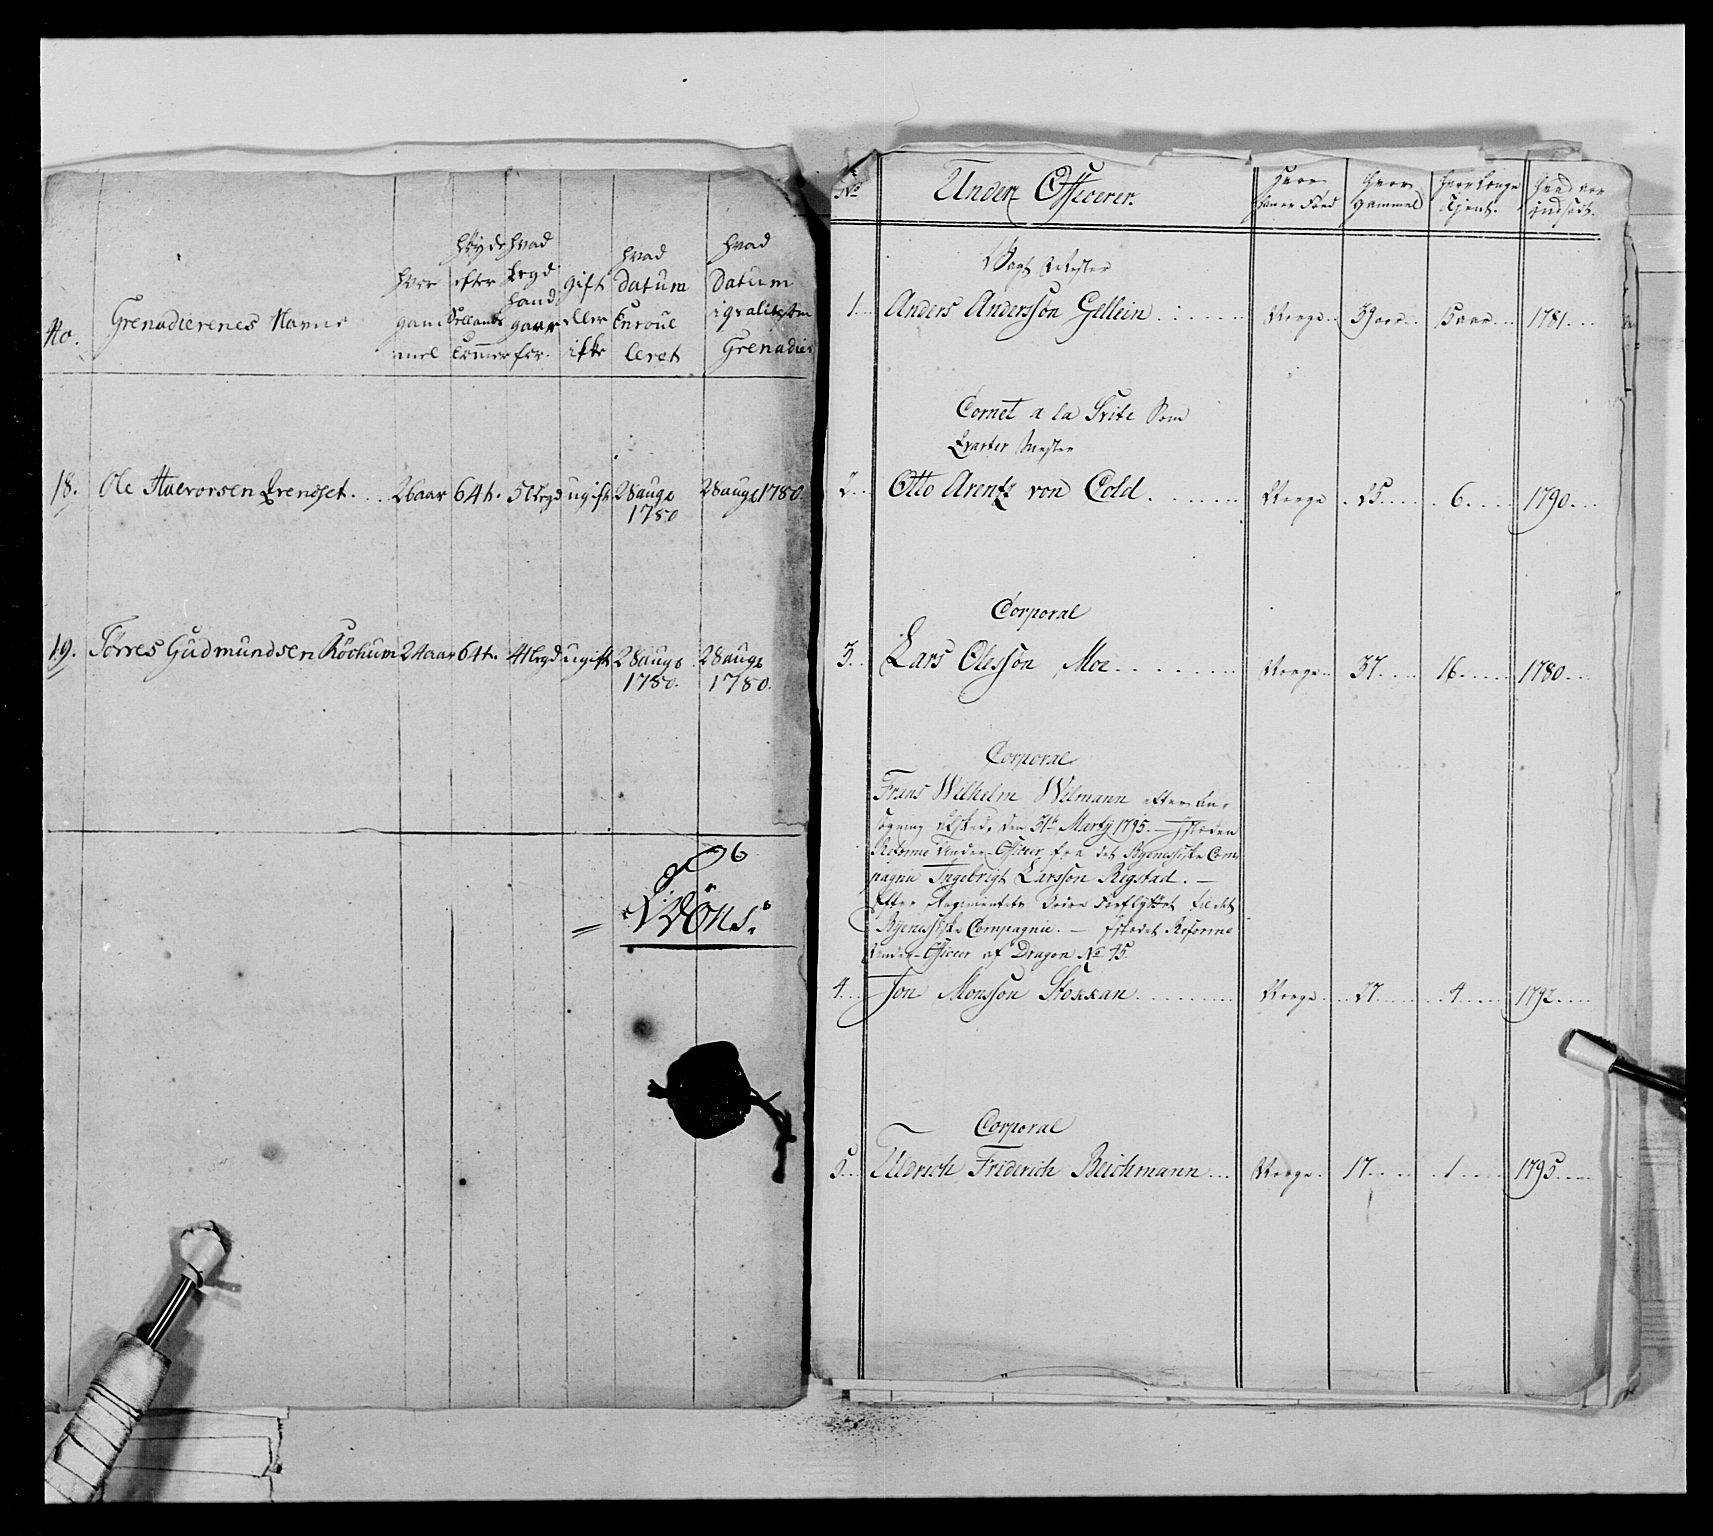 No.
Grenadierenes Navne
hvor gam mel
høyde efter Sellands tommer
hvad Legd hand gaar for.
gift eller ikke
hvad datum Enroul leret
hvad datum i qvalitet som Grenadier
18. Ole Halvorsen 26 aar 64 t. 51 legd ugift 28 aug: 1780 28 aug: 1780.
19. Tørres Gudmundsen 24 aar 64 t. 41 legd ugift 28 aug: 1780. 28 aug: 1780.
No Under Officerer.
Hvor han er Fød
hvor gammel
hvor længe tjent.
hvad aar indsadt.
Vagt Mester
1. Anders Andersson Gellein Norge 39 aar 15 aar 1781
Cornet a la Svite som
Qvarter Mester
2. Otto Arentz von Cold Norge 25 6 1790
Corporal
3. Lars Olesson Moe Norge 37 16 1780
Corporal
Frans Wilhelm Wilmann efter An-
søgning afsked, den 31te Martij 1795. — Isteden
Reforme Under-Officer fra det Compagnie
Ingebrigt Larsson Regstad. —
Efter Regimentets Ordre forflyttet til det
Compagnie. — Istedet Reforme
Under-Officer af Dragon No 45.
4. Jon Monsson Stokkan Norge 27 4 1792
Corporal
5. Uldrich Friderich Beichmann Norge 17 1 1795